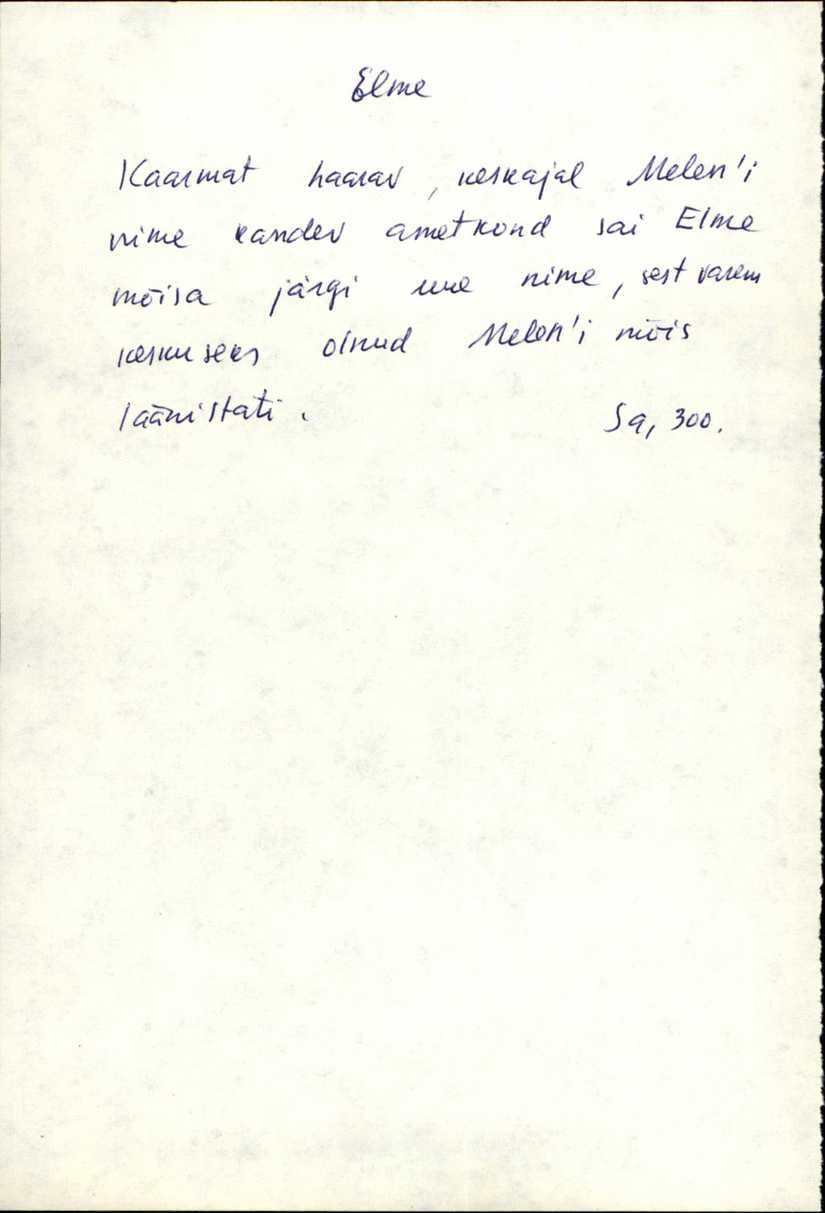 Elme
Kaarmat haarav, keskajal Melen'i
nime kandev ametkond sai Elme
mõisa järgi uue nime, sest varem
keskuseks olnud Melen'i mõis
läänistati.
Sa, 300.